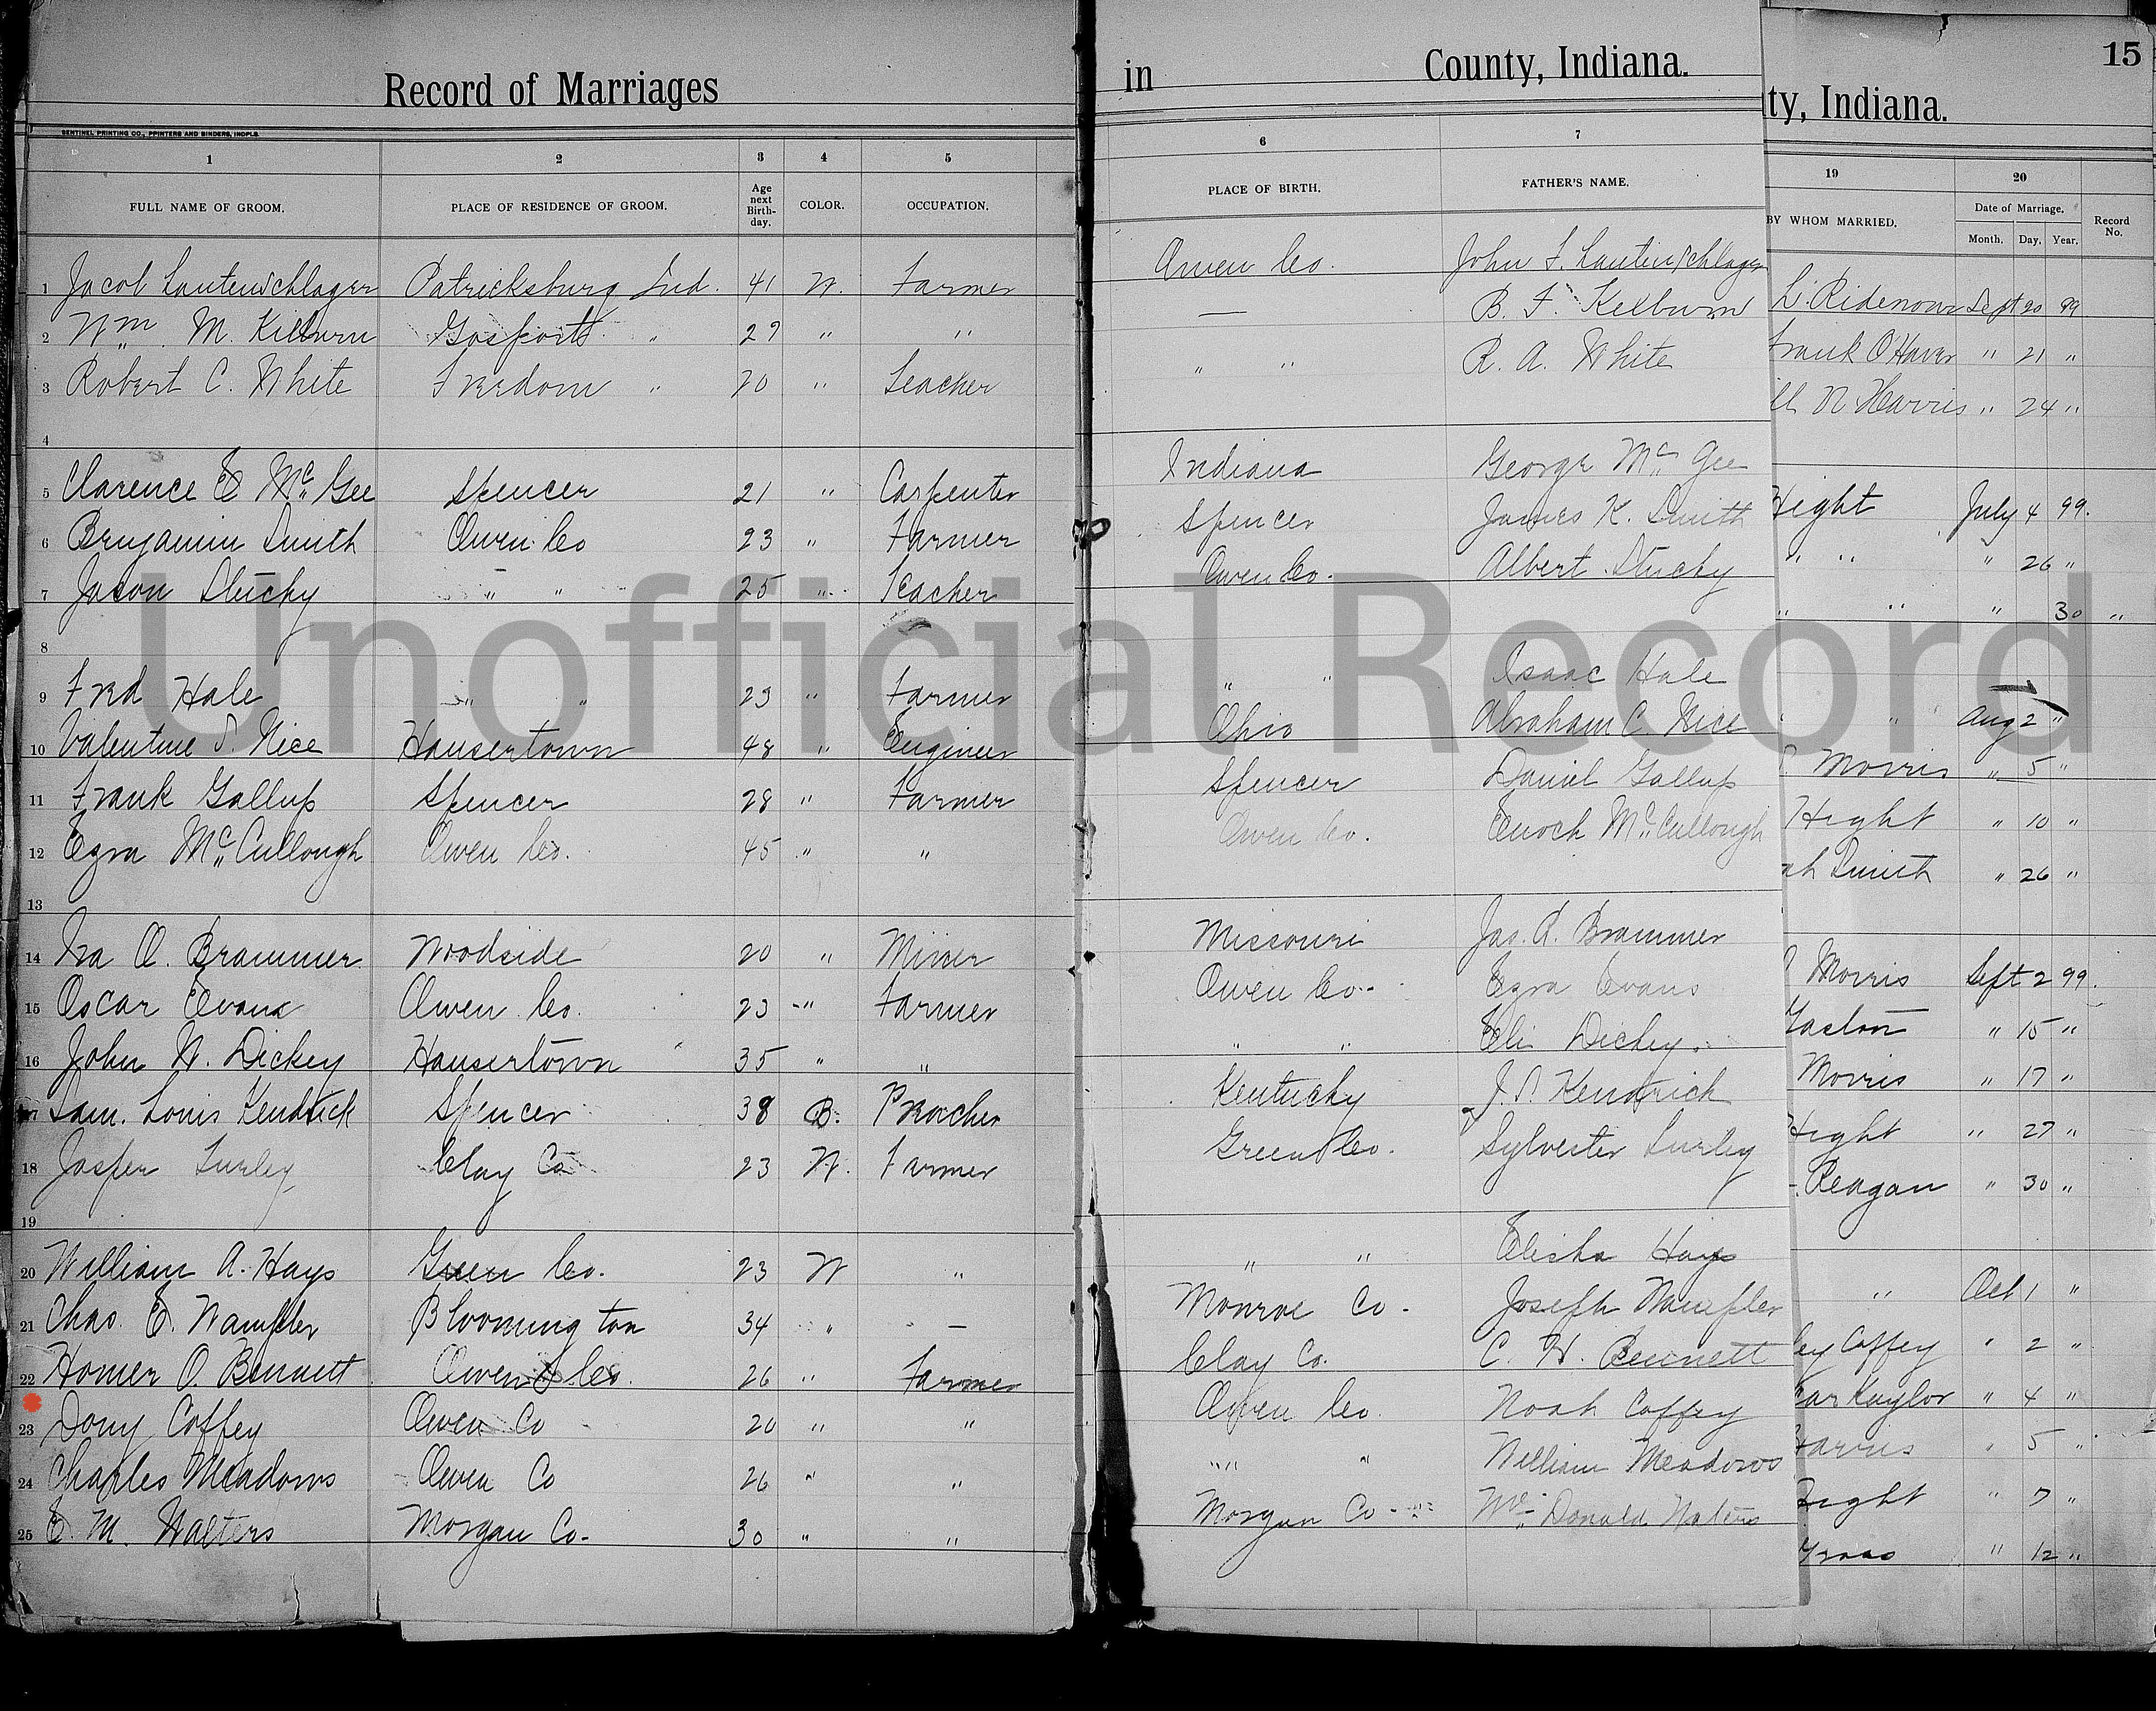 Record of Marriages
in County, Indiana.
ty, Indiana.
15
SENTINEL PRINTING CO., PRINTERS AND BINDERS, INDPLS.
1 2 3 4 5 6 7 19 20
FULL NAME OF GROOM. PLACE OF RESIDENCE OF GROOM. Age next Birth-day. COLOR. OCCUPATION. PLACE OF BIRTH. FATHER'S NAME. BY WHOM MARRIED. Date of Marriage. Month. Day. Year. Record No.
1 Jacob Lautenschlager Patricksburg Ind. 41 W. Farmer Owen Co. John F. Lautenschlager L. Ridenour Sept 20 99
2 Wm. M. Kilburn Gosport " 27 " " — B. F. Kelburn Frank O'Haver " 21 "
3 Robert C. White Freedom " 20 " Teacher " " R. A. White ll N Harris " 24 "
4
5 Clarence E McGee Spencer 21 " Carpenter Indiana George McGee Hight July 4 99.
6 Benjamin Smith Owen Co 23 " Farmer Spencer James K. Smith " " " 26 "
7 Jason Stucky " " 25 " Teacher Owen Co. Albert Stucky " " " 30 "
8
9 Fred Hale " " 23 " Farmer " " Isaac Hale " Aug 2 "
10 Valentine S. Nice Hausertown 48 " Engineer Ohio Abraham C. Nice Morris " 5 "
11 Frank Gallup Spencer 28 " Farmer Spencer Daniel Gallup Hight " 10 "
12 Ezra McCullough Owen Co. 45 " " Owen Co. Enoch McCullough ah Smith " 26 "
13
14 Ira O. Brammer Woodside 20 " Miner Missouri Jas. A. Brammer Morris Sept 2 99.
15 Oscar Evans Owen Co. 23 " Farmer Owen Co. Ezra Evans Gaston " 15 "
16 John W. Dickey Hausertown 35 " " " " Eli Dickey. Morris " 17 "
17 Sam. Louis Kendrick Spencer 38 B. Preacher Kentucky J. S. Kendrick Hight " 27 "
18 Jasper Lurley Clay Co 23 W. Farmer Green Co. Sylvester Lurley Reagan " 30 "
19
20 William A. Hays Green Co. 23 W " " " Elisha Hays " Oct 1 "
21 Chas. E. Wampler Bloomington 34 " — Monroe Co. Joseph Wampler ey Coffey " 2 "
22 Homer O. Bennett Owen Co. 26 " Farmer Clay Co. C. H. Bennett car Kaylor " 4 "
23 Dony Coffey Owen Co 20 " " Owen Co. Noah Coffey Harris " 5 "
24 Charles Meadows Owen Co 26 " " " " William Meadows Hight " 7 "
25 E. M. Walters Morgan Co. 30 " " Morgan Co Mc Donald Walters Gross " 12 "
Unofficial Record